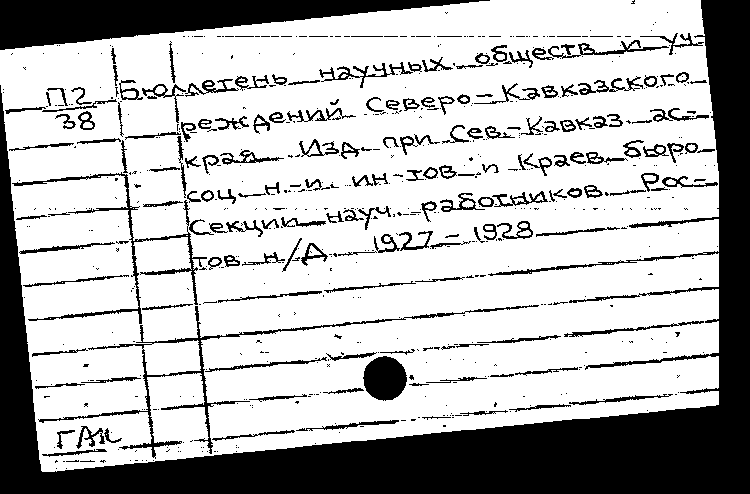 П2
38
Бюллетень научных обществ и уч-
реждений Северо-Кавказского
края. Изд. при Сев.-Кавказ. ас-
соц. н.-и. ин-тов и Краев. бюро
Секции науч. работников. Рос-
тов н/Д 1927-1928